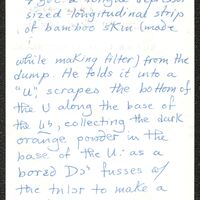 sized longitudinal strip
of bamboo skin (made
while making filter) from the
dump. He folds it into a
"U", scrapes the bottom of
the U along the base of
the, collecting the dark
orange powder in the
base of the U: as a
bored Do' fusses w/
the to make a